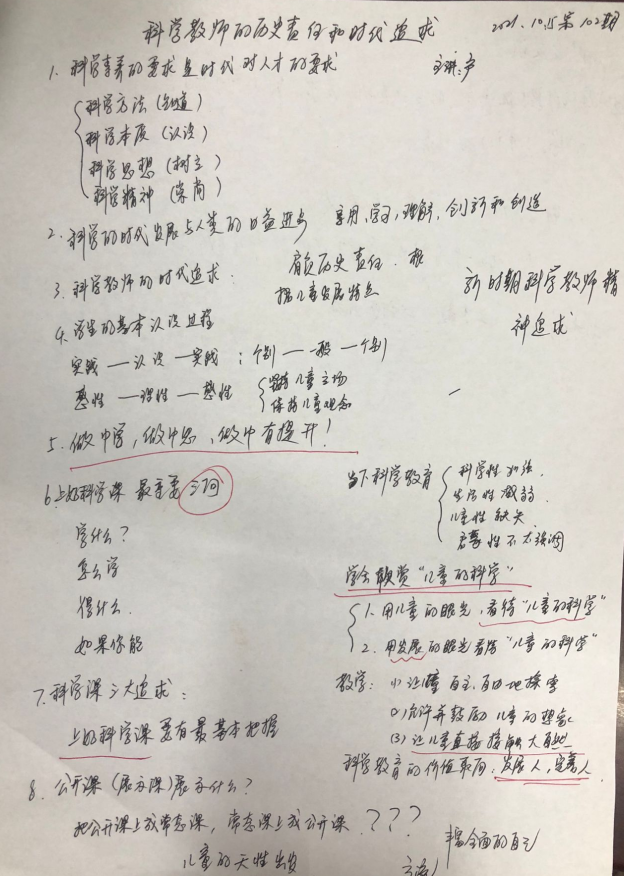 科学教师的历史责任和时代追求
2021.10.15第102期
1. 科学素养的要求是时代对人才的要求
主讲:
科学方法(知道)
科学本质(认识)
科学思想(树立)
科学精神(崇尚)
2. 科学的时代发展与人类的日益进步 享用,学习,理解,创新和创造
3. 科学教师的时代追求. 肩负历史责任. 根
据儿童发展特点
新时期科学教师精
神追求
4. 学生的基本认识过程
实践—认识—实践;个别—一般—个别
感性—理性—感性
坚持儿童立场
保持儿童观念
5. 做中学,做中思,做中有提升!
6. 上好科学课 最主要 三问
学什么?
怎么学
得什么.
如果你能
7. 科学课三大追求:
上好科学课要有最基本把握
8. 公开课(展示课)展示什么?
把公开课上成常态课,常态课上成公开课???
儿童的天性出发
当下科学教育
科学性 加强.
生活性 减弱.
儿童性 缺失.
启蒙性不太强调
学会欣赏“儿童的科学”
1. 用儿童的眼光,看待“儿童的科学”
2. 用发展的眼光看待“儿童的科学”
教学: (1) 让 自主、自由地探索
(2) 允许并鼓励儿童的想象
(3) 让儿童直接接触大自然
科学教育的价值取向:发展人,完善人
全面的自己